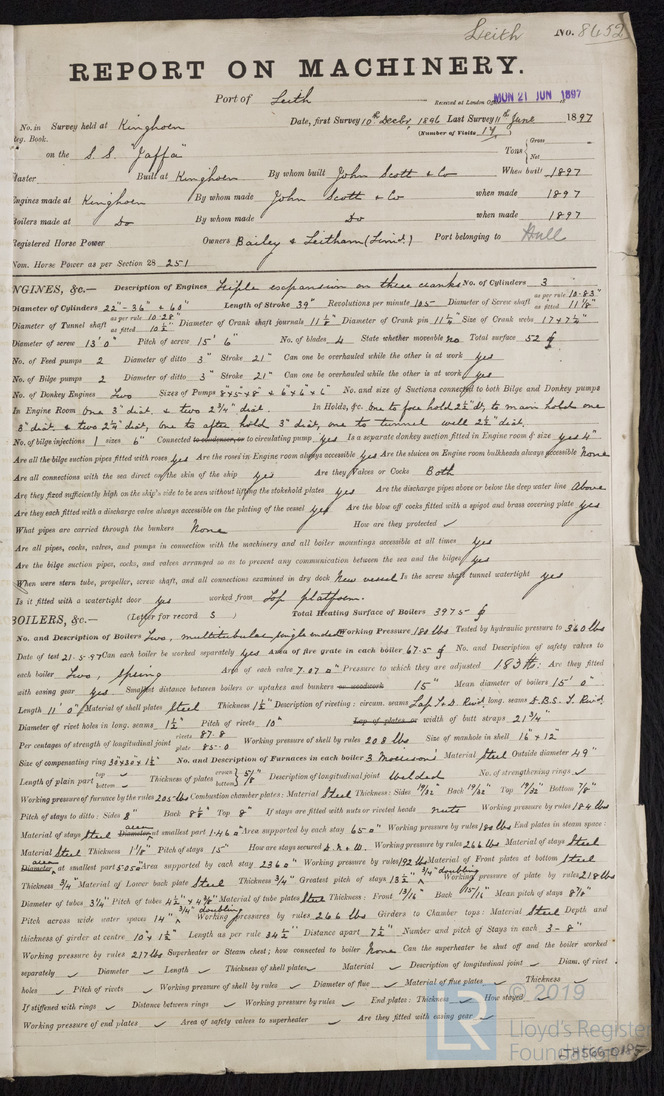 Leith No. 8652
REPORT ON MACHINERY.
Port of Leith Received at London Office MON 21 JUN 1897
No. in Survey held at Kinghorn Date, first Survey 10th Decbr 1896 Last Survey 11th June 1897
Reg. Book. (Number of Visits 14)
on the S.S. "Jaffa" Tons { Gross Net
Master Built at Kinghorn By whom built John Scott & Co When built 1897
Engines made at Kinghorn By whom made John Scott & Co when made 1897
Boilers made at Do By whom made Do when made 1897
Registered Horse Power Owners Bailey & Leetham (Limd.) Port belonging to Hull
Nom. Horse Power as per Section 28 251
ENGINES, &c.— Description of Engines Triple expansion on three cranks No. of Cylinders 3
Diameter of Cylinders 22" - 36" & 60" Length of Stroke 39" Revolutions per minute 105 Diameter of Screw shaft as per rule 10.83" as fitted 11 1/8"
Diameter of Tunnel shaft as per rule 10.28" as fitted 10 1/2" Diameter of Crank shaft journals 11 1/8" Diameter of Crank pin 11 1/4" Size of Crank webs 17 x 7 1/4"
Diameter of screw 13' 0" Pitch of screw 15' 6" No. of blades 4 State whether moveable no Total surface 52
No. of Feed pumps 2 Diameter of ditto 3" Stroke 21" Can one be overhauled while the other is at work yes
No. of Bilge pumps 2 Diameter of ditto 3" Stroke 21" Can one be overhauled while the other is at work yes
No. of Donkey Engines Two Sizes of Pumps 8"x5"x8" & 6"x6"x6" No. and size of Suctions connected to both Bilge and Donkey pumps
In Engine Room One 3" diat. & two 2 3/4" diat. In Holds, &c. One to fore hold 2 1/2" dt, to main hold one
3" diat. & two 2 1/2" diat, one to after hold 3" diat, one to tunnel well 2 1/2" diat.
No. of bilge injections 1 sizes 6" Connected to condenser, or to circulating pump yes Is a separate donkey suction fitted in Engine room & size yes 4"
Are all the bilge suction pipes fitted with roses yes Are the roses in Engine room always accessible yes Are the sluices on Engine room bulkheads always accessible none
Are all connections with the sea direct on the skin of the ship yes Are they Valves or Cocks Both
Are they fixed sufficiently high on the ship's side to be seen without lifting the stokehold plates yes Are the discharge pipes above or below the deep water line Above
Are they each fitted with a discharge valve always accessible on the plating of the vessel yes Are the blow off cocks fitted with a spigot and brass covering plate yes
What pipes are carried through the bunkers None How are they protected ✓
Are all pipes, cocks, valves, and pumps in connection with the machinery and all boiler mountings accessible at all times yes
Are the bilge suction pipes, cocks, and valves arranged so as to prevent any communication between the sea and the bilges yes
When were stern tube, propeller, screw shaft, and all connections examined in dry dock New vessel Is the screw shaft tunnel watertight yes
Is it fitted with a watertight door yes worked from Top platform.
BOILERS, &c.— (Letter for record S) Total Heating Surface of Boilers 3975
No. and Description of Boilers Two, multitubular, single ended Working Pressure 180 lbs Tested by hydraulic pressure to 360 lbs
Date of test 21.5.97 Can each boiler be worked separately yes Area of fire grate in each boiler 67.5 No. and Description of safety valves to
each boiler Two, Spring Area of each valve 7.07" Pressure to which they are adjusted 183 lbs. Are they fitted
with easing gear yes Smallest distance between boilers or uptakes and bunkers or woodwork 15" Mean diameter of boilers 15' 0"
Length 11' 0" Material of shell plates Steel Thickness 1 1/2" Description of riveting: circum. seams Lap T.D. Rivd. long. seams D.B.S. T. Rivd.
Diameter of rivet holes in long. seams 1 1/2" Pitch of rivets 10" Lap of plates or width of butt straps 21 3/4"
Per centages of strength of longitudinal joint rivets 87.8 plate 85.0 Working pressure of shell by rules 208 lbs Size of manhole in shell 16" x 12"
Size of compensating ring 38"x30"x1 1/2" No. and Description of Furnaces in each boiler 3 Morison's Material Steel Outside diameter 49"
Length of plain part top ✓ bottom ✓ Thickness of plates crown bottom 5/8" Description of longitudinal joint Welded No. of strengthening rings ✓
Working pressure of furnace by the rules 205 lbs Combustion chamber plates: Material Steel Thickness: Sides 19/32" Back 19/32" Top 19/32" Bottom 7/8"
Pitch of stays to ditto: Sides 8" Back 8 5/8" Top 8" If stays are fitted with nuts or riveted heads nuts Working pressure by rules 184 lbs
Material of stays Steel Diameter area at smallest part 1.460" Area supported by each stay 65.0" Working pressure by rules 180 lbs End plates in steam space:
Material Steel Thickness 1 1/8" Pitch of stays 15" How are stays secured D.N. & W. Working pressure by rules 266 lbs Material of stays Steel
Diameter area at smallest part 5.050" Area supported by each stay 236.0" Working pressure by rules 192 lbs Material of Front plates at bottom Steel
Thickness 3/4" Material of Lower back plate Steel Thickness 3/4" Greatest pitch of stays 13 1/2" 3/4" doubling Working pressure of plate by rules 218 lbs
Diameter of tubes 3 1/4" Pitch of tubes 4 1/2" x 4 3/8" Material of tube plates Steel Thickness: Front 13/16" Back 15/16" Mean pitch of stays 8 7/8"
Pitch across wide water spaces 14" 3/4" doubling Working pressures by rules 266 lbs Girders to Chamber tops: Material Steel Depth and
thickness of girder at centre 10" x 1 1/2" Length as per rule 34 1/2" Distance apart 7 1/2" Number and pitch of Stays in each 3 - 8"
Working pressure by rules 217 lbs Superheater or Steam chest; how connected to boiler None Can the superheater be shut off and the boiler worked
separately ✓ Diameter ✓ Length ✓ Thickness of shell plates ✓ Material ✓ Description of longitudinal joint ✓ Diam. of rivet
holes ✓ Pitch of rivets ✓ Working pressure of shell by rules ✓ Diameter of flue ✓ Material of flue plates ✓ Thickness ✓
If stiffened with rings ✓ Distance between rings ✓ Working pressure by rules ✓ End plates: Thickness ✓ How stayed ✓
Working pressure of end plates ✓ Area of safety valves to superheater ✓ Are they fitted with easing gear ✓
LR © 2019
Lloyd's Register
Foundation